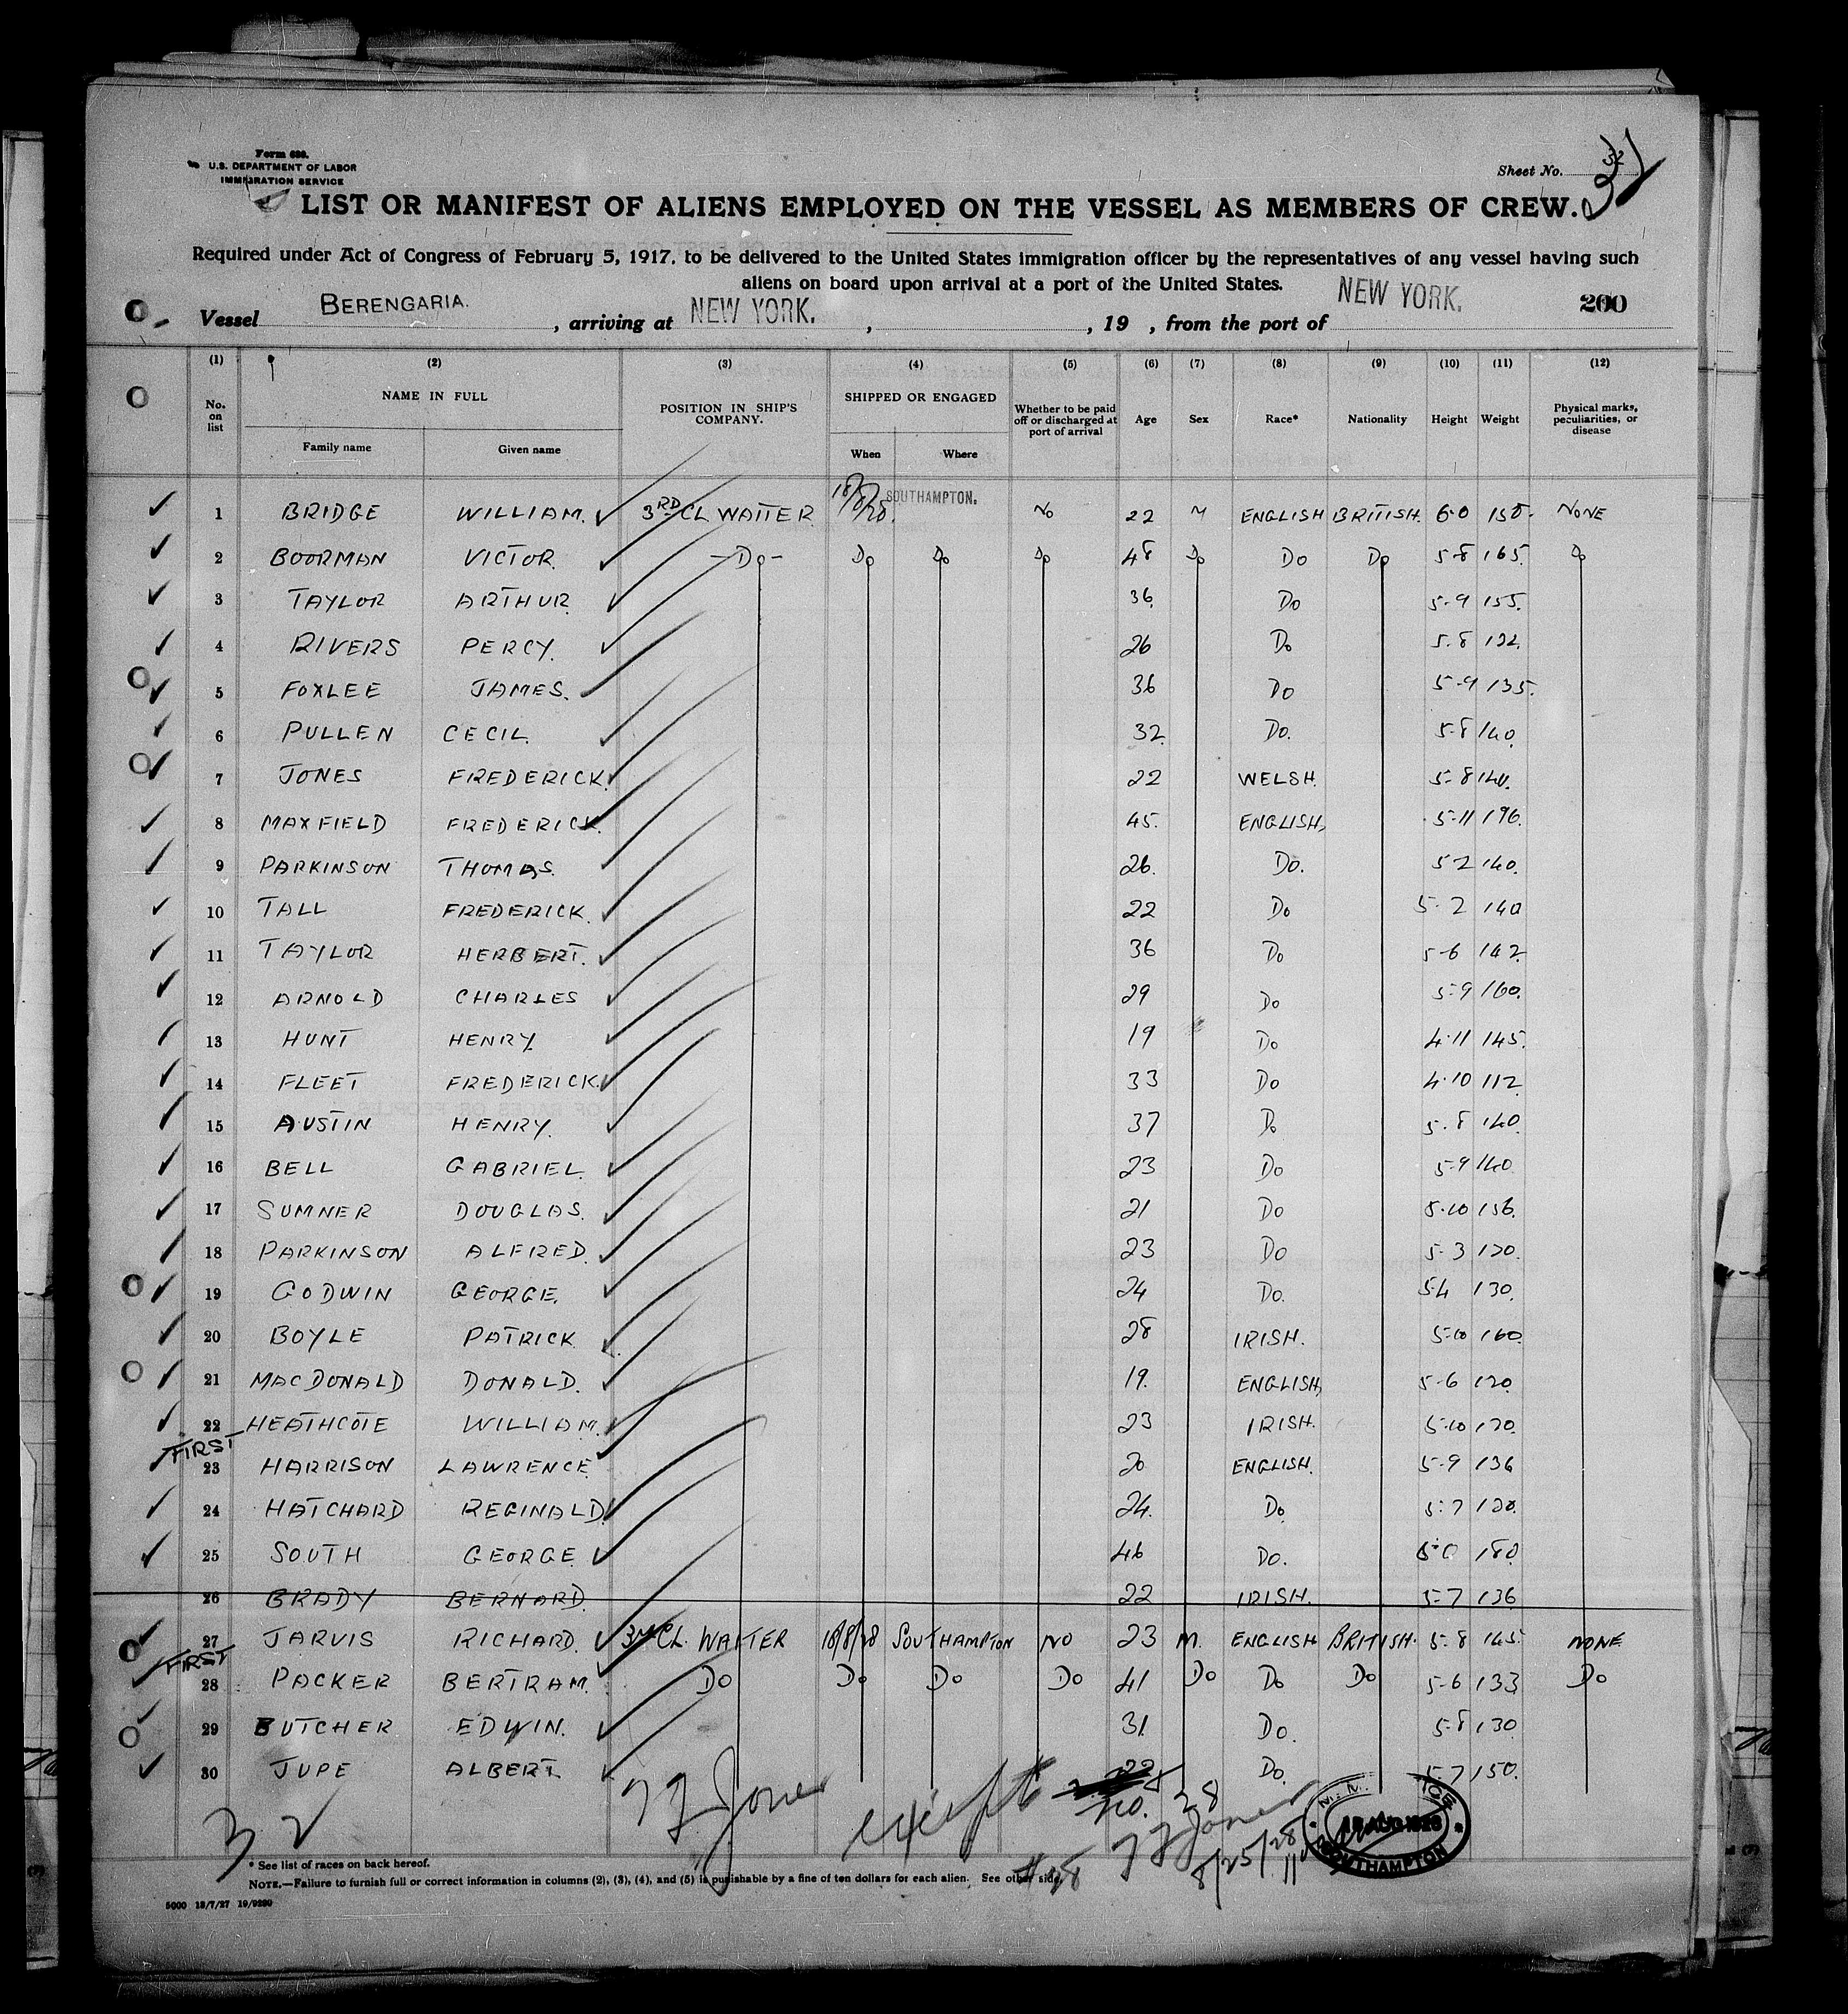 Form 680.
U.S. DEPARTMENT OF LABOR
IMMIGRATION SERVICE
Sheet No. 32
LIST OR MANIFEST OF ALIENS EMPLOYED ON THE VESSEL AS MEMBERS OF CREW.
Required under Act of Congress of February 5, 1917, to be delivered to the United States immigration officer by the representatives of any vessel having such
aliens on board upon arrival at a port of the United States.
Vessel BERENGARIA. , arriving at NEW YORK. , , 19 , from the port of NEW YORK. 200
(1) (2) (3) (4) (5) (6) (7) (8) (9) (10) (11) (12)
No. on list NAME IN FULL Family name Given name POSITION IN SHIP'S COMPANY. SHIPPED OR ENGAGED When Where Whether to be paid off or discharged at port of arrival Age Sex Race* Nationality Height Weight Physical marks, peculiarities, or disease
1 BRIDGE WILLIAM. 3RD CL WAITER 18/8/28. SOUTHAMPTON. No 22 M ENGLISH BRITISH. 6-0 NONE
2 BOORMAN VICTOR. -Do- Do Do Do 48 Do Do Do 5-8 165. Do
3 TAYLOR ARTHUR. 36. Do 5-9 155.
4 RIVERS PERCY. 26 Do 5.8 122.
5 FOXLEE JAMES. 36 Do 5-9 135.
6 PULLEN CECIL. 32. Do. 5-8 140.
7 JONES FREDERICK. 22 WELSH. 5-8
8 MAXFIELD FREDERICK. 45. ENGLISH, 5-11 196.
9 PARKINSON THOMAS. 26. Do. 5 2 140.
10 TALL FREDERICK. 22 Do 5-2 140
11 TAYLOR HERBERT. 36 Do 5-6 142
12 ARNOLD CHARLES 29 Do 5-9 160.
13 HUNT HENRY. 19 Do 4.11 145.
14 FLEET FREDERICK. 33 Do 4.10 112
15 AUSTIN HENRY. 37 Do 5.8 140.
16 BELL GABRIEL. 23 Do 5-9 140
17 SUMNER DOUGLAS. 21 Do 5.10 156.
18 PARKINSON ALFRED. 23 Do 5-3 120.
19 GODWIN GEORGE. 24 Do. 5-4 130.
20 BOYLE PATRICK 28 IRISH. 5-10 160.
21 MACDONALD DONALD. 19. ENGLISH, 5-6 120.
22 HEATHCOTE WILLIAM. 23 IRISH. 5-10 170.
FIRST
23 HARRISON LAWRENCE 20 ENGLISH. 5-9 136
24 HATCHARD REGINALD. 24. Do 5-7 120.
25 SOUTH GEORGE. 46 Do. 180.
26 BRADY BERNARD. 22 IRISH. 5-7 136
27 JARVIS RICHARD. 3rd CL. WAITER 18/8/28 SOUTHAMPTON NO 23 M. ENGLISH BRITISH. 5-8 145. NONE
FIRST
28 PACKER BERTRAM. Do Do Do Do 41 Do Do Do 5-6 133 Do
29 BUTCHER EDWIN. 31 Do. 5-8 130
30 JUPE ALBERT. 22 Do. 5-7 150.
32 Jones except no. 28
Jones
8/25/28
SOUTHAMPTON
* See list of races on back hereof.
NOTE.—Failure to furnish full or correct information in columns (2), (3), (4), and (5) is punishable by a fine of ten dollars for each alien. See other side.
5000 18/7/27 19/9290